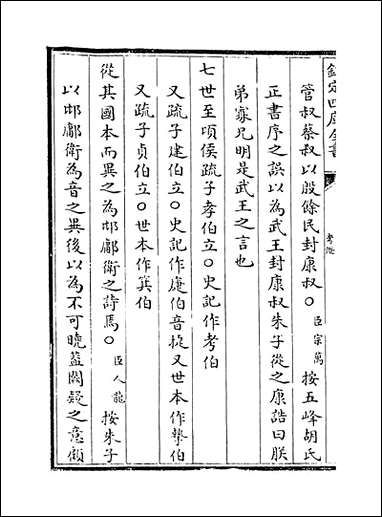 欽定四庫全書
考證
管叔蔡叔以殷餘民封康叔〇臣宗萬按五峰胡氏
正書序之誤以為武王封康叔朱子從之康誥曰朕
弟寡兄明是武王之言也
七世至頃侯疏子孝伯立〇史記作考伯
又疏子建伯立〇史記作庱伯音捷又世本作摯伯
又疏子貞伯立〇世本作箕伯
從其國本而異之為邶鄘衛之詩焉〇臣人龍按朱子
以邶鄘衛為音之異後以為不可曉蓋闕疑之意傾